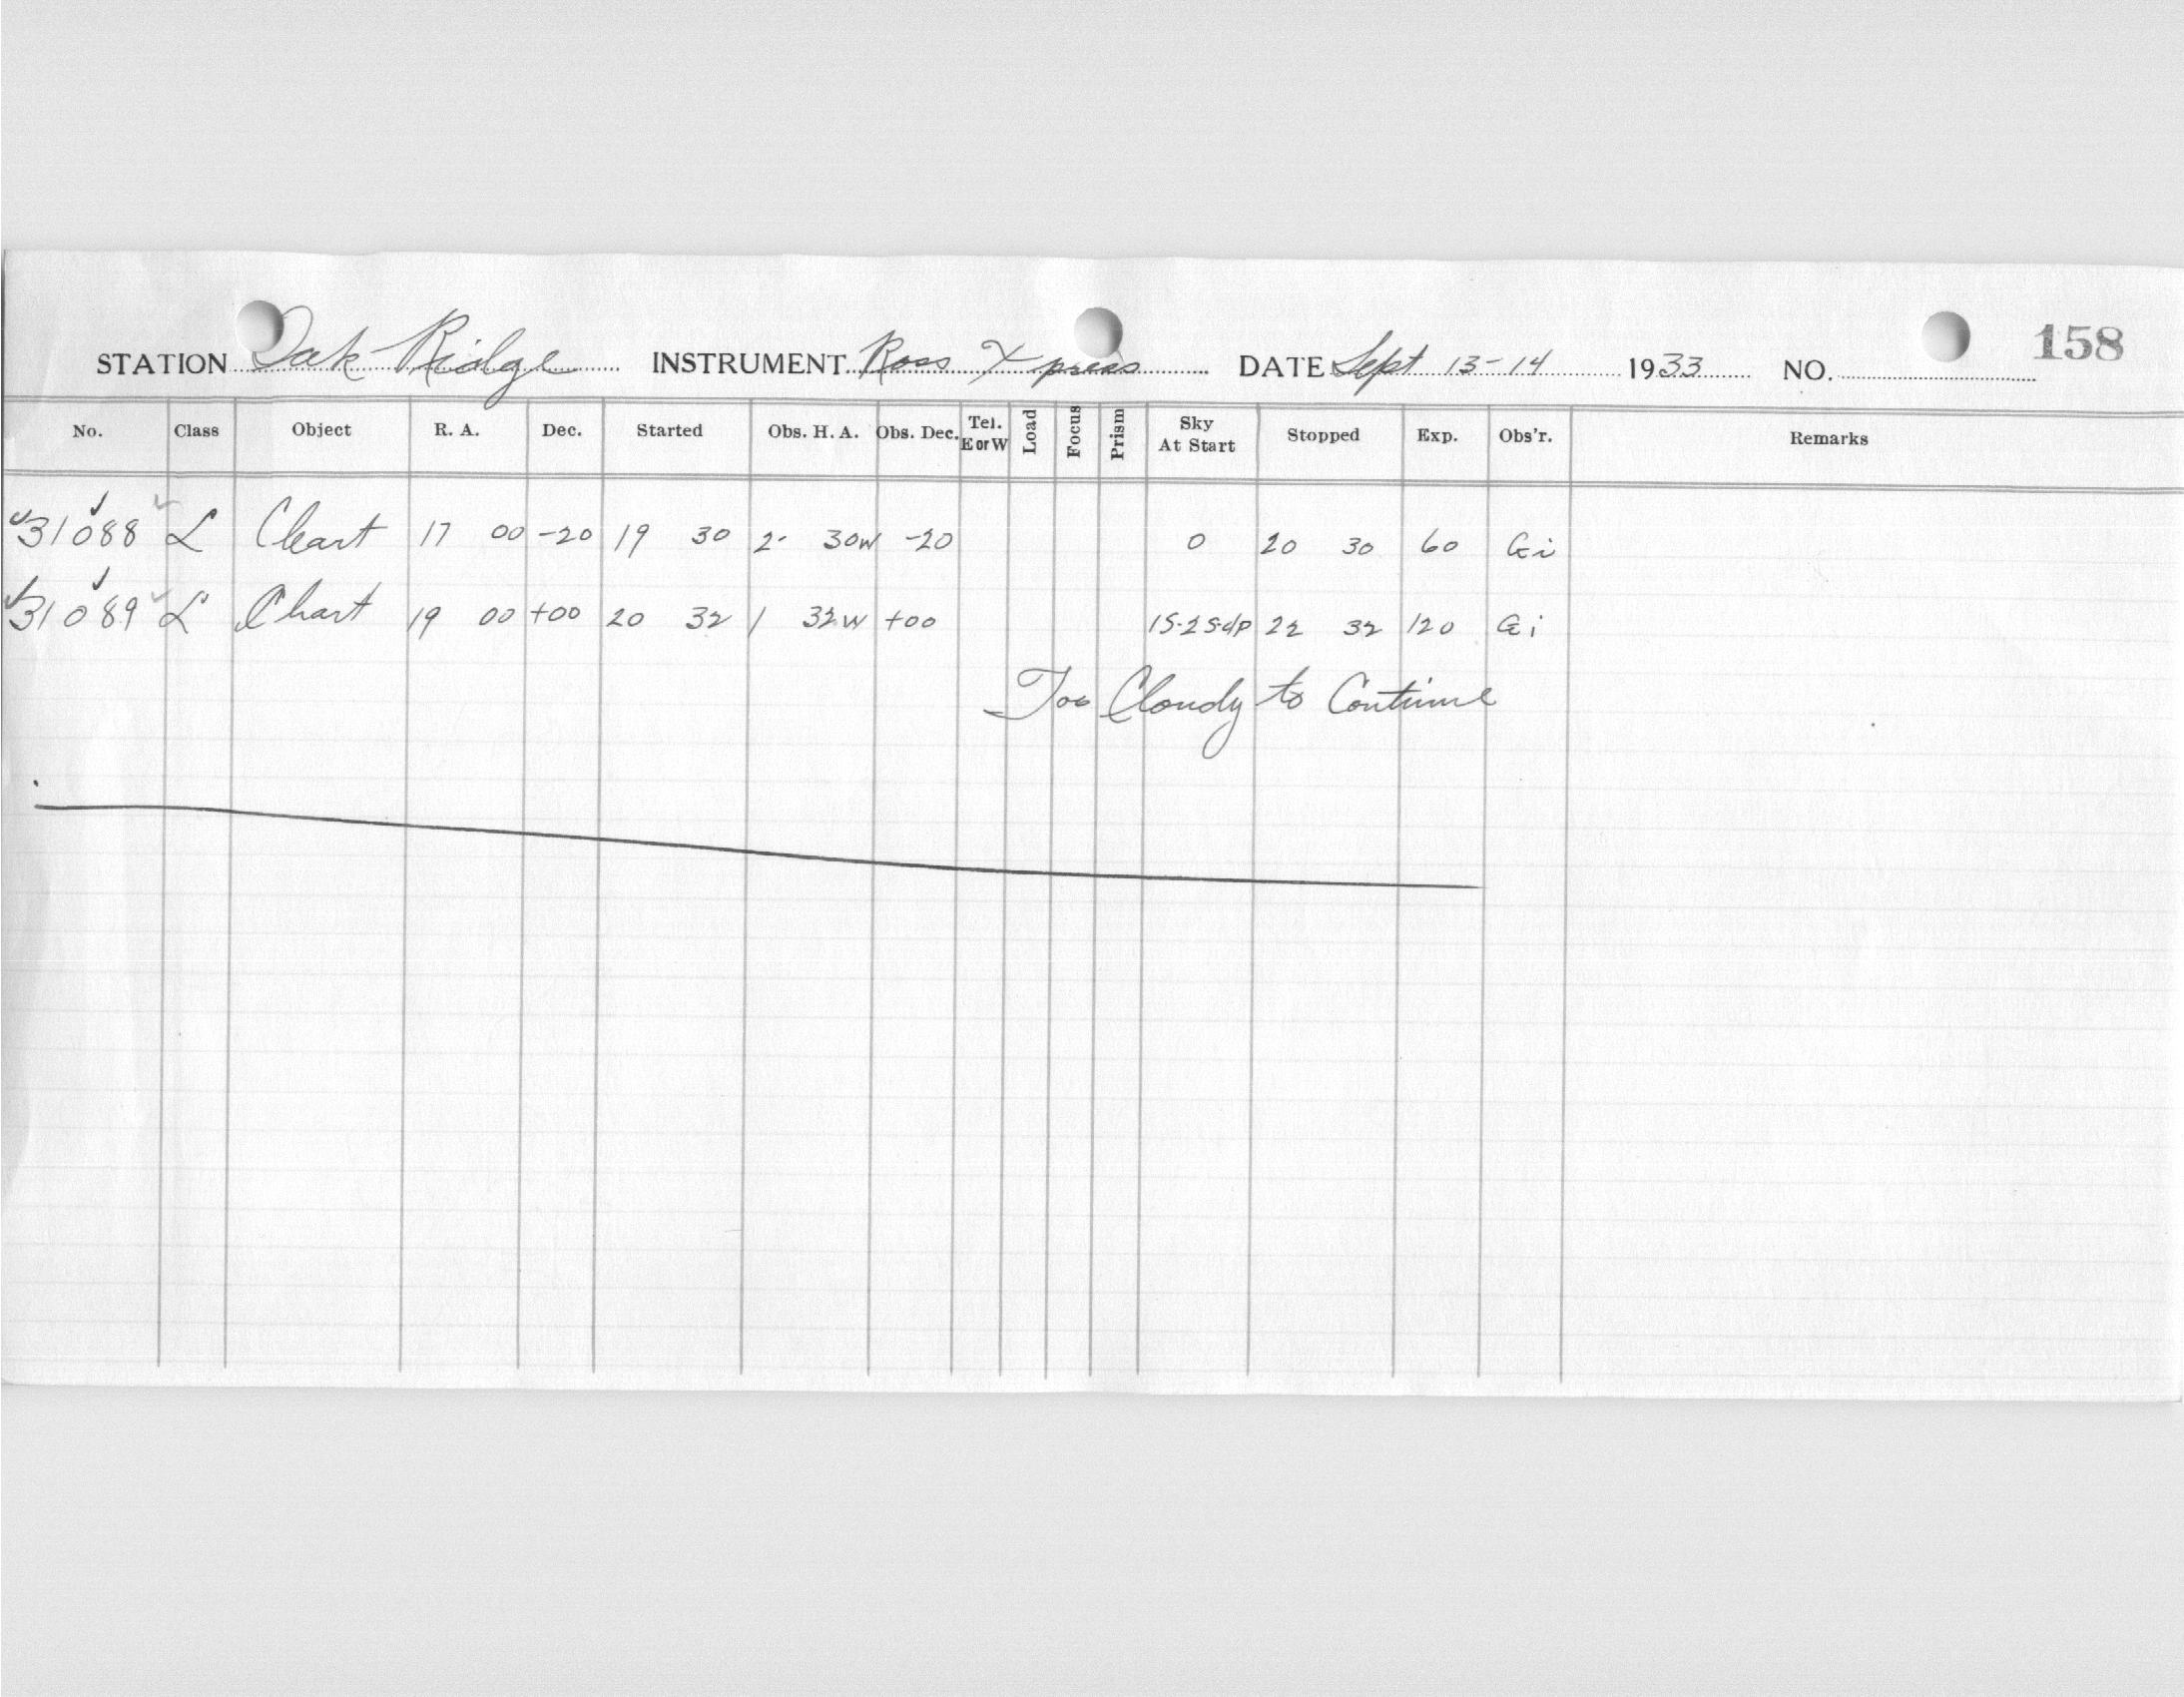 158
STATION Oak Ridge INSTRUMENT Ross Xpress DATE Sept 13-14 1933 NO.
No. Class Object R. A. Dec. Started Obs. H. A. Obs. Dec. Tel. E or W Load Focus Prism Sky At Start Stopped Exp. Obs'r. Remarks
31088 L Chart 17 00 -20 19 30 2 30W -20 0 20 30 60 Gi
31089 L Chart 19 00 +00 20 32 1 32W +00 22 32 120 Gi
Too Cloudy to Continue